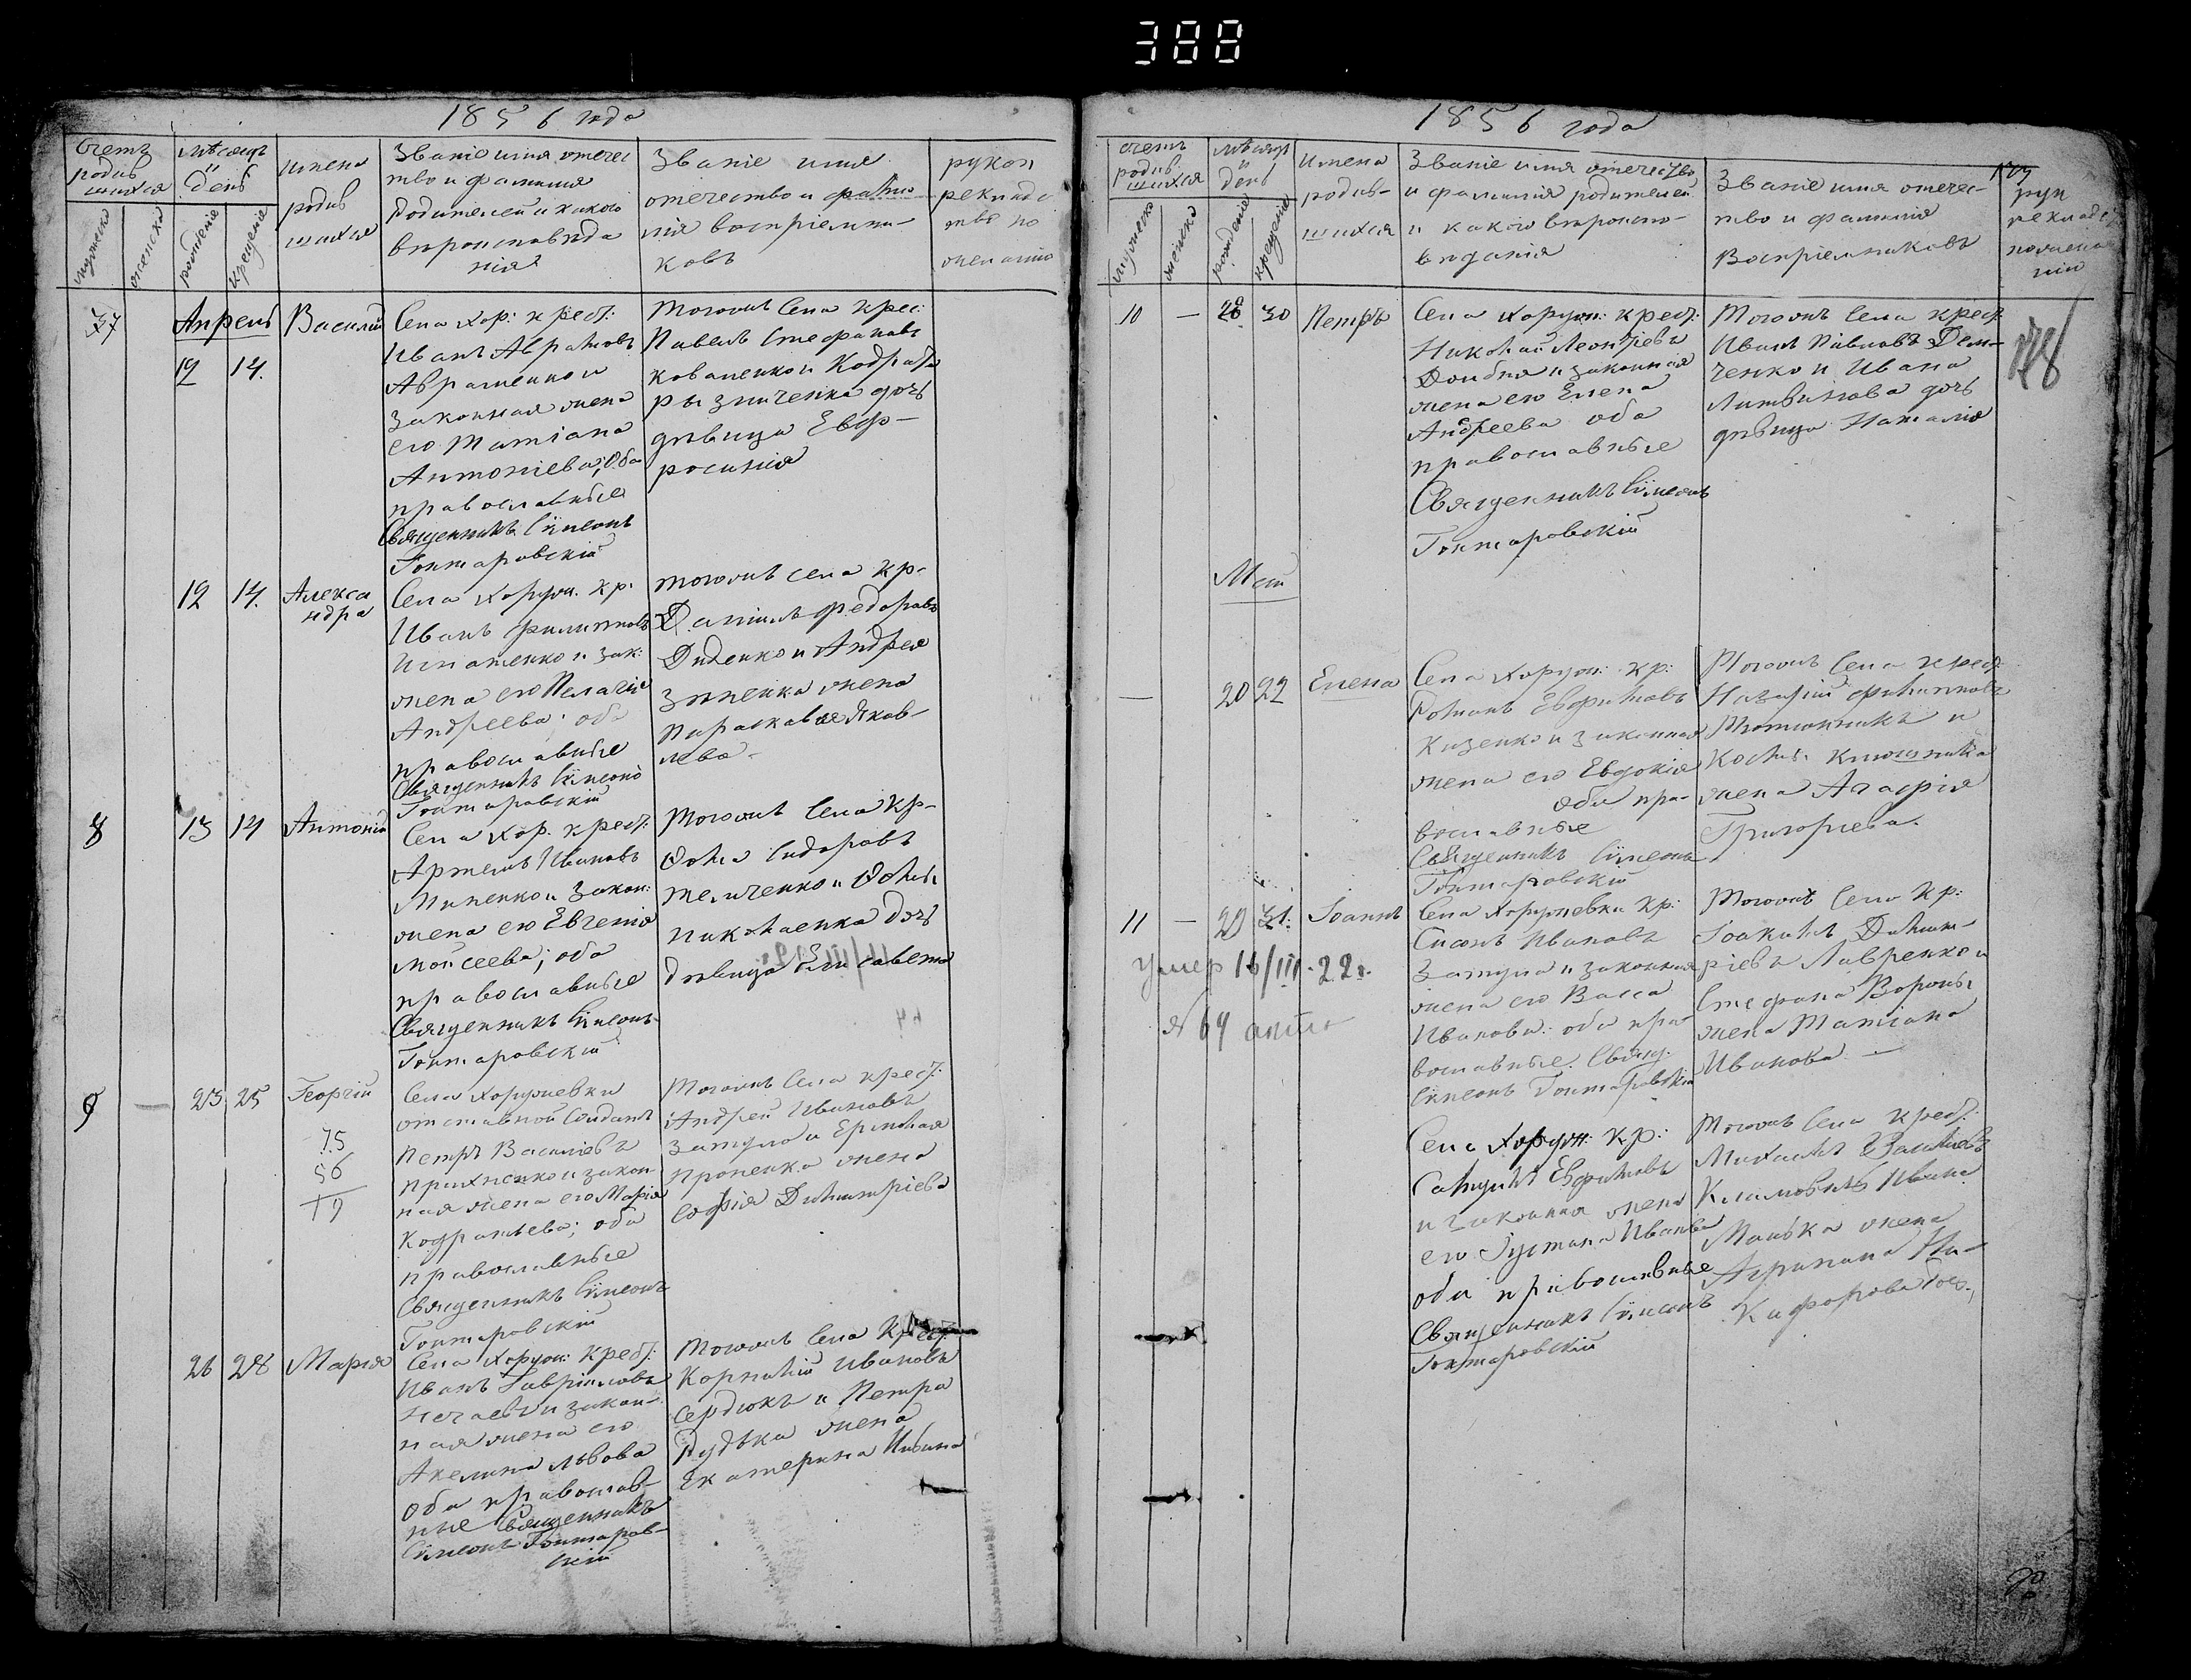 388
1856 года
Счетъ родив шихся
мѣсяцъ и день
имена родив шихся
Званіе имя отечес тво и фамилія Родителей и какого вѣроисповѣда нія
Званіе имя отечество и фамилія воспріемни- ковъ
мужеска
женска
рожденіе
крещеніе
7
Апрель
12 14.
Василій
Села Хор: крест:
Иванъ Аврамовъ
Авраменко и
законная жена
его Татіана
Антоніева; оба
православные
Священникъ Сѵмеонъ
Гонтаровскій
Тогожъ Села крес:
Павелъ Стефановъ
Коваленко и Кодрата
дочь
дѣвица Евф-
росинія
12 14.
Алекса ндра
Села Хоруж. кр.
Иванъ Филипповъ
Игнатенко и зак:
жена его Пелагія
Андреева; оба
православные
Священникъ Сѵмеонъ
Гонтаровскій
Тогожъ села кр-
Даніилъ Федоровъ
Диденко и Андрея
Зинченка жена
Параскавія Яков-
лева-
8
13 14
Антоній
Села Хор. крест:
Артемъ Ивановъ
Миненко и закон:
жена его Евгенія
Моисеева; оба
православные
Священникъ Сѵмеонъ
Гонтаровскій
Тогожъ Села Кр-
Ѳома Сидоровъ
Теличенко и Ѳомы
Николаенка дочь
дѣвица Елисавета
9 —
23 25
Георгій
75
56
19
Села Хоружевки
отставной Солдатъ
Петръ Василіевъ
и закон-
ная жена его Марія
Кодратьева; оба
православные
Священникъ Сѵмеонъ
Гонтаровскій
Тогожъ Села крест:
Андрей Ивановъ
Затула и Ермолая
Проненка жена
Софія Димитріева
26 28
Марія
Села Хоруж: Крест:
Иванъ Гавріиловъ
Нечаевъ и закон-
ная жена его
Акелина Львова
оба православ-
ные Священникъ
Сѵмеонъ Гонтаров-
скій
Тогожъ Села Крест:
Корнилій Ивановъ
Сердюкъ и Петра
Рудька жена
Екатерина
1856 года
счетъ родив шихся
мѣсяцъ и день
Имена родив- шихся
Званіе имя отечество и фамилія родителей и какого вѣроиспо- вѣданія
Званіе имя отечес- тво и фамилія Воспріемниковъ
мужеско
женско
рожденіе
крещеніе
10 —
28 30
Петръ
Села Хоруж: крест:
Николай Леонтіевъ
Довбня и законная
жена его Елена
Андреева оба
православные
Священникъ Сѵмеонъ
Гонтаровскій
Тогожъ Села крест
Иванъ Павловъ Дем-
ченко и Ивана
Литвинова дочь
дѣвица Наталія
Май
—
20 22
Елена
Села Хоруж: кр:
Романъ Евфимовъ
Киценко и законная
жена его Евдокія
оба пра-
вославные
Священникъ Сѵмеонъ
Гонтаровскій
Тогожъ Села крест:
Назарій Филипповъ
и
Космы Ключника
жена Агафія
Григоріева.
11 —
29 31.
Іоаннъ
умер 16/III-22г.
№ 64
Села Хоружевки Кр:
Сисой Ивановъ
Затула и законная
жена его Васса
Иванова: оба пра-
вославные. Свящ:
Сѵмеонъ Гонтаровскій
Тогожъ Села Кр:
Іоакимъ Димит-
ріевъ Лавренко и
Стефана Вороны
жена Татіана
Иванова —
Села Хоруж: Кр:
Евфимовъ
и законная жена
его Густина Иванова
оба православные
Священникъ Сѵмеонъ
Гонтаровскій
Тогожъ Села крест:
Михаилъ Василіевъ
Климовичъ Ивана
Манька жена
Агрипина Ни-
кифорова